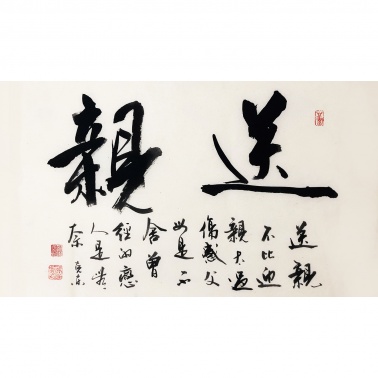 送親
送親
不比迎
親太過
傷感父
母是不
舍曾
經的戀
人是無
奈